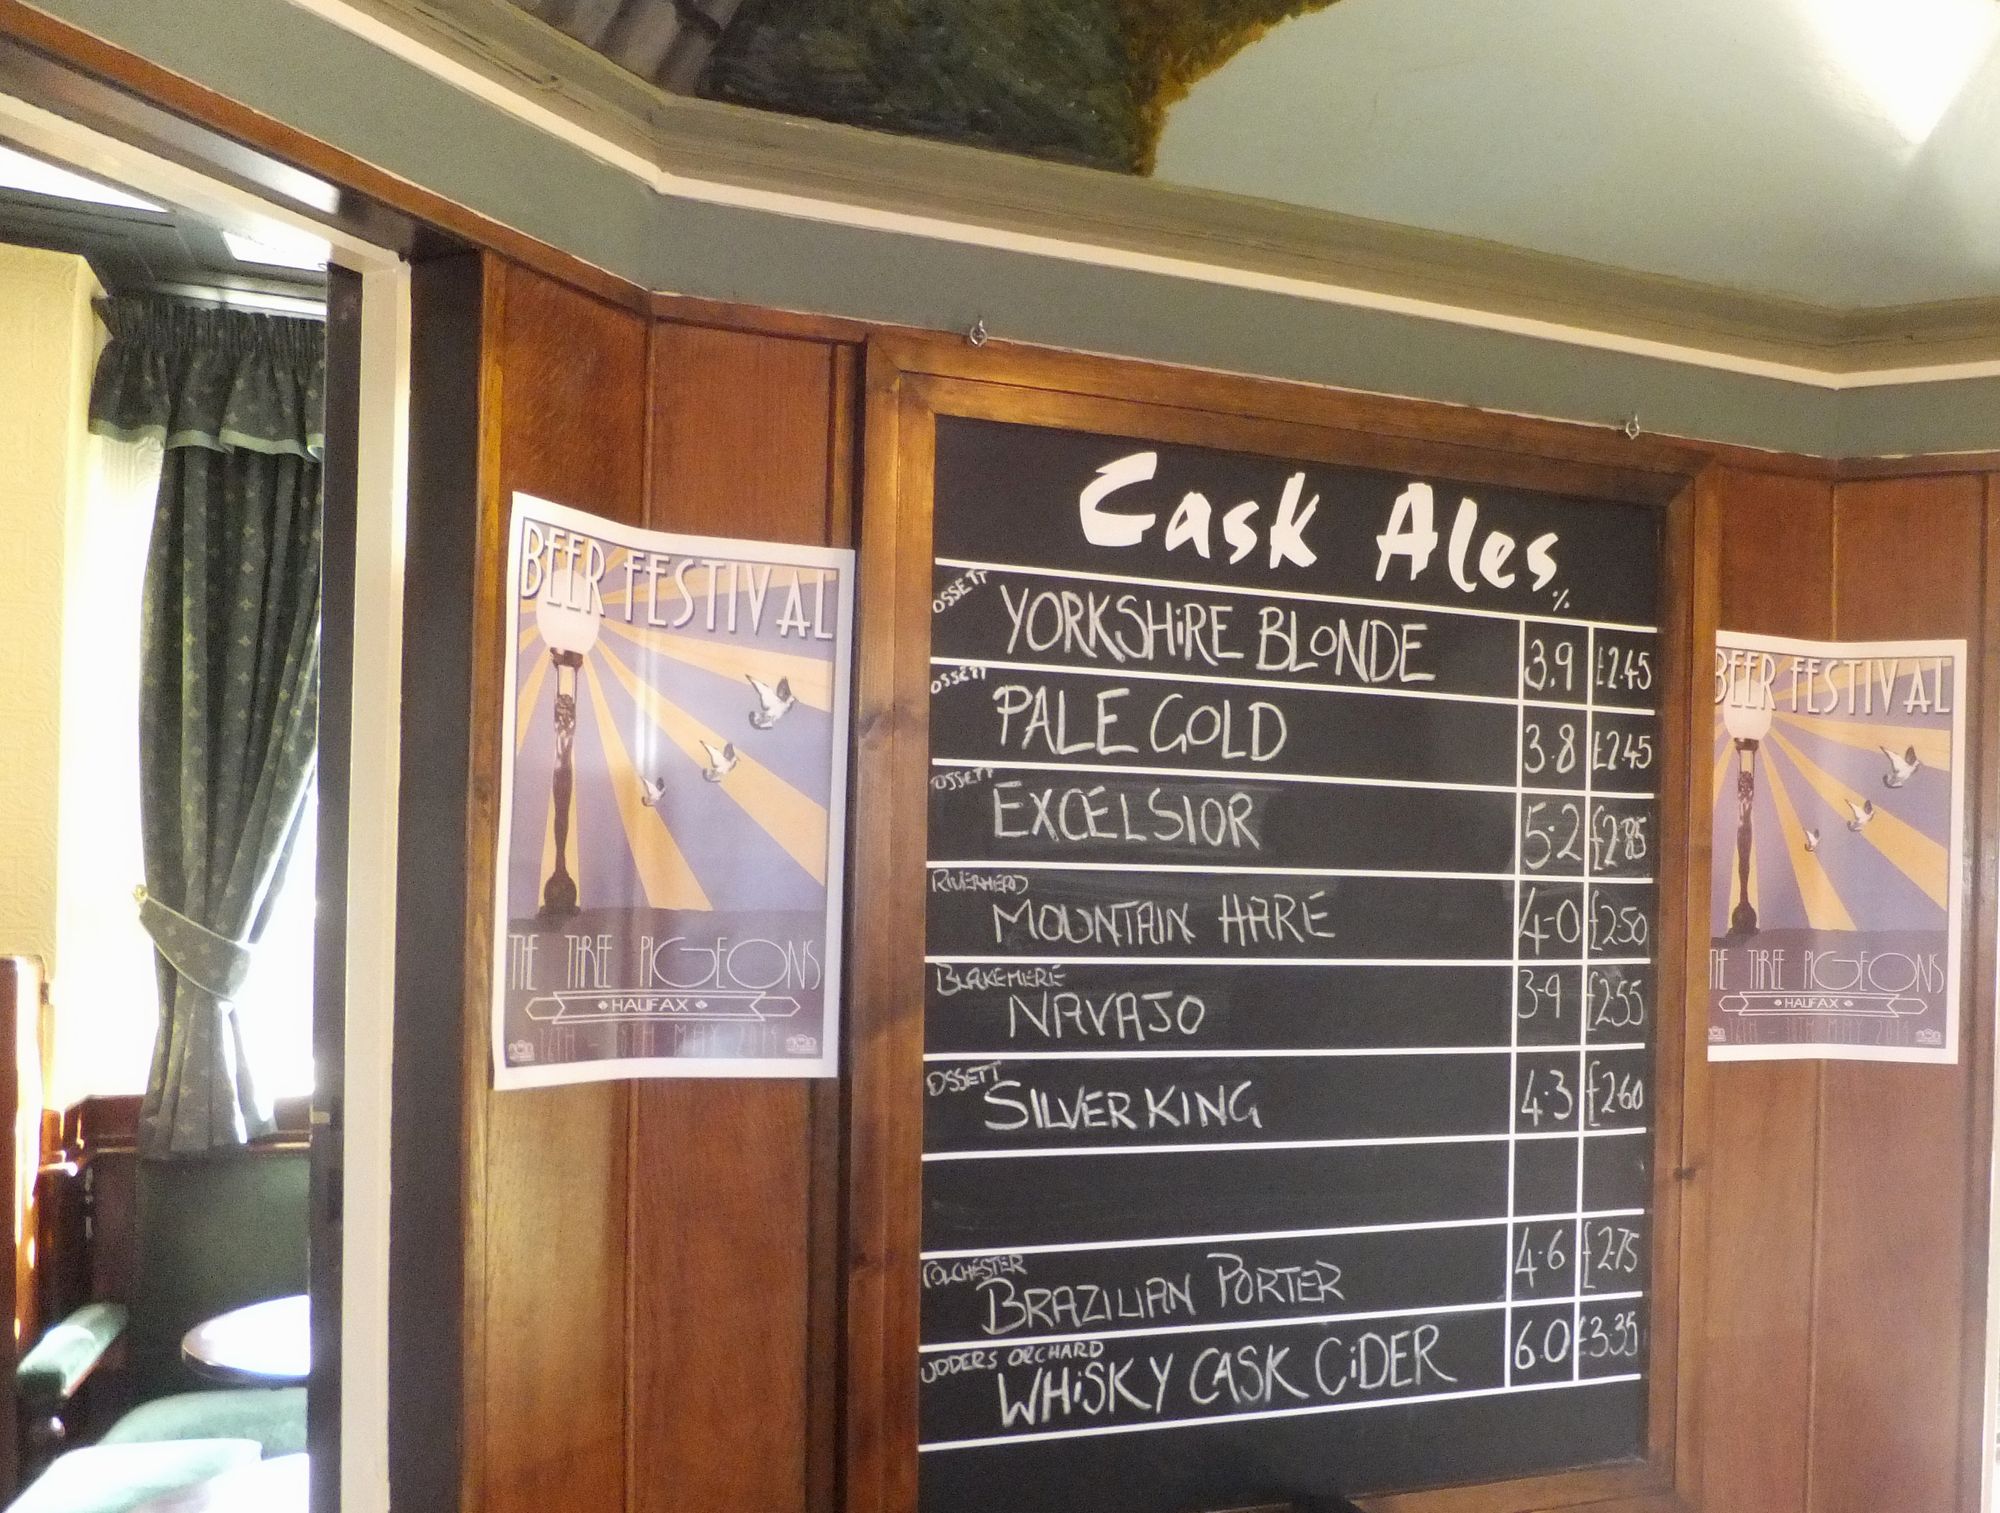 BEER FESTIVAL
THE THREE PIGEONS
HALIFAX
Cask Ales %
OSSETT
YORKSHIRE BLONDE 3.9 £2.45
OSSETT
PALE GOLD 3.8 £2.45
OSSETT
EXCELSIOR 5.2 £2.85
RIVERHEAD
MOUNTAIN HARE 4.0 £2.50
BLAKEMERE
NAVAJO 3.9 £2.55
OSSETT
SILVER KING 4.3 £2.60
COLCHESTER
BRAZILIAN PORTER 4.6 £2.75
UDDERS ORCHARD
WHISKY CASK CIDER 6.0 £3.35
BEER FESTIVAL
THE THREE PIGEONS
HALIFAX